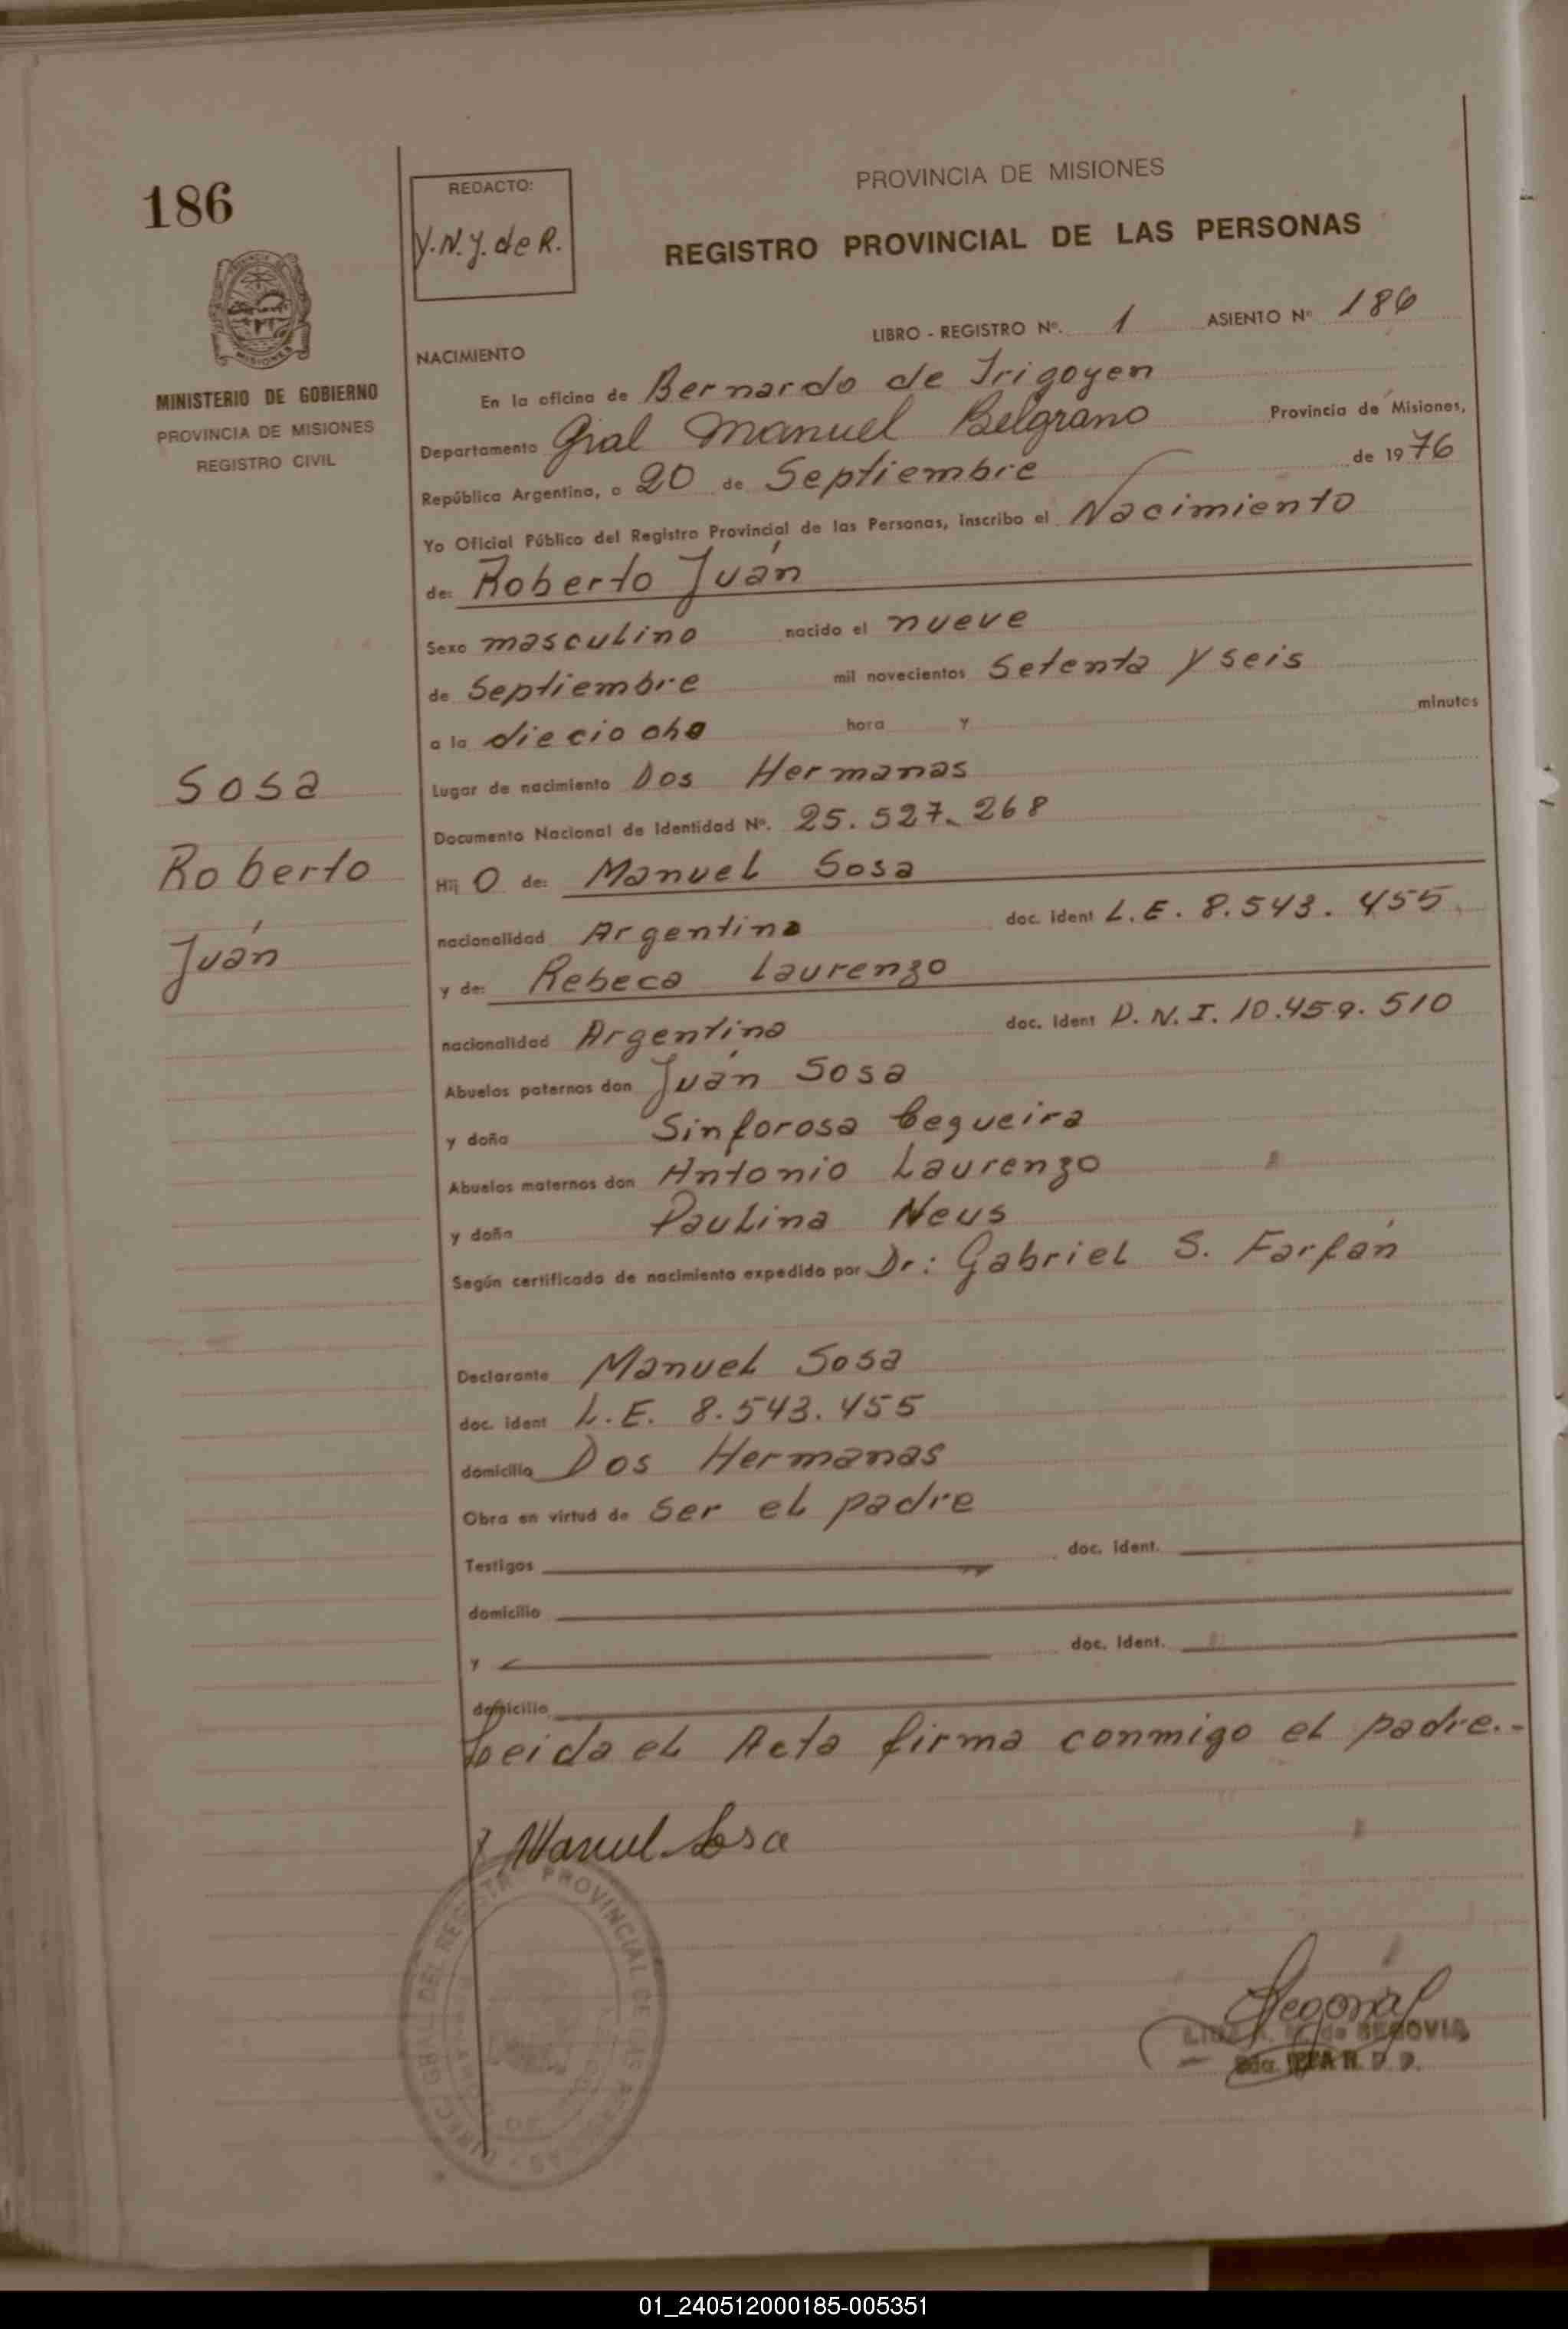 186
MINISTERIO DE GOBIERNO
PROVINCIA DE MISIONES
REGISTRO CIVIL
REDACTO:
Y.N.Y. de R.
PROVINCIA DE MISIONES
REGISTRO PROVINCIAL DE LAS PERSONAS
LIBRO - REGISTRO Nº. 1 ASIENTO Nº 186
NACIMIENTO
En la oficina de Bernardo de Irigoyen
Departamento Gral Manuel Belgrano Provincia de Misiones,
República Argentina, a 20 de Septiembre de 1976
Yo Oficial Público del Registro Provincial de las Personas, inscribo el Nacimiento
de: Roberto Juán
Sexo masculino nacido el nueve
de Septiembre mil novecientos Setenta y seis
a la dieciocho hora y minutos
Lugar de nacimiento Dos Hermanas
Documento Nacional de Identidad Nº. 25.527.268
Hij O de: Manuel Sosa
nacionalidad Argentina doc. ident L.E. 8.543.455
y de: Rebeca Laurenzo
nacionalidad Argentina doc. ident D.N.I. 10.459.510
Abuelos paternos don Juán Sosa
y doña Sinforosa Cequeira
Abuelos maternos don Antonio Laurenzo
y doña Paulina Neus
Según certificado de nacimiento expedido por Dr: Gabriel S. Farfán
Declarante Manuel Sosa
doc. ident L.E. 8.543.455
domicilio Dos Hermanas
Obra en virtud de Ser el padre
Testigos doc. ident.
domicilio
y doc. ident.
domicilio
Leida el Acta firma conmigo el padre.-
Sosa
Roberto
Juán
Manuel Sosa
PROVINCIAL DE LAS
DEL REGISTR
de SEGOVIA
01_240512000185-005351